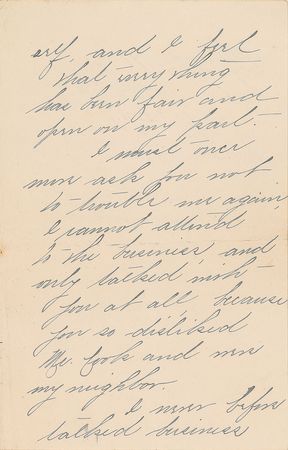 erf, and I feel
that everything
has been fair and
open on my part.
I must once
more ask you not
to trouble me again,
I cannot attend
to the business, and
only talked with
you at all, because
you so disliked
Mr. Cook and were
my neighbor.
I never before
talked business